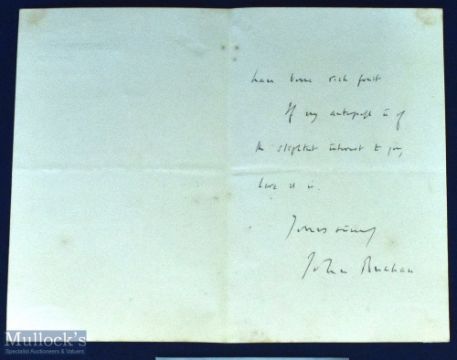 have borne rich fruit
If my autograph is of
the slightest interest to you,
here it is.
Yours sincerely
John Buchan
Mullock's
Specialist Auctioneers & Valuers